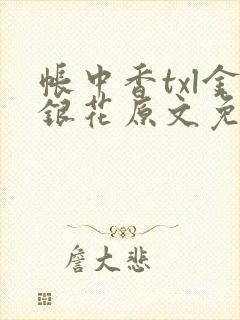 帳中香txl金
銀花原文免
詹大悲